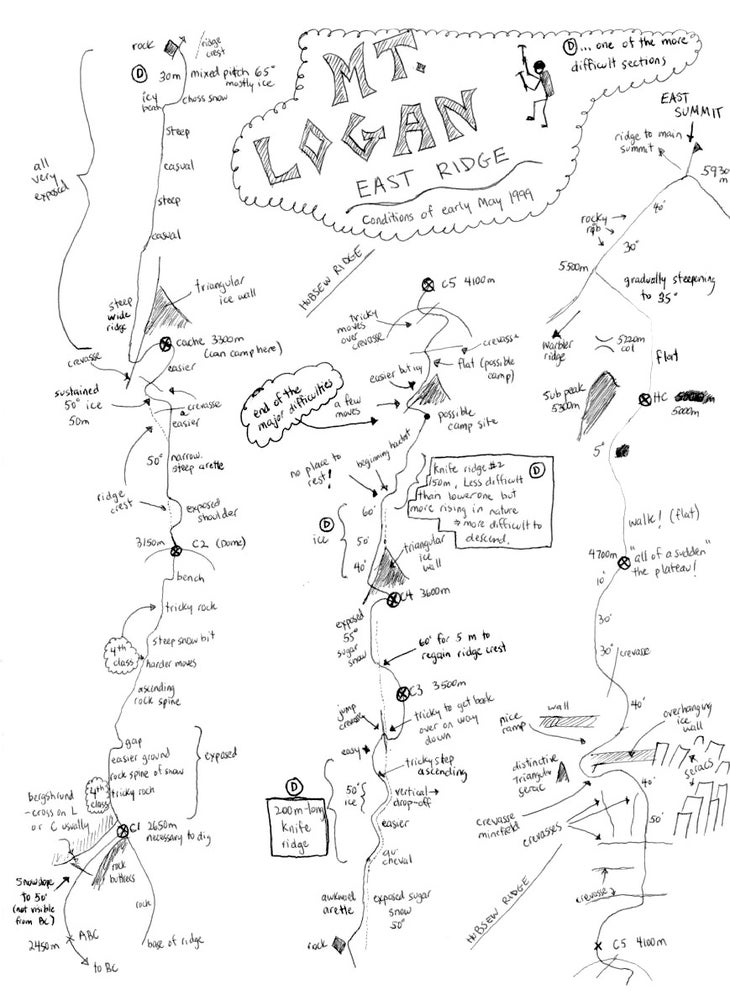 MT.
LOGAN
EAST RIDGE
Conditions of early May 1999
D ... one of the more
difficult sections
rock
ridge
crest
D
30m mixed pitch 65°
mostly ice
icy
choss snow
steep
casual
steep
casual
all
very
exposed
steep
wide
ridge
triangular
ice wall
cache 3300m
(can camp here)
crevasse
easier
sustained
50° ice
50m
crevasse
easier
50°
narrow
steep arete
ridge
crest
exposed
shoulder
3150m
C2 (Dome)
bench
tricky rock
steep snow bit
4th
class
harder moves
ascending
rock spine
gap
easier ground
rock spine of snow
4th
class
tricky rock
exposed
bergshrund
-cross on L
or C usually
C1 2650m
necessary to dig
rock
buttress
snowslope
to 50°
(not visible
from BC)
rock
2450m
ABC
to BC
base of ridge
HOBSEW RIDGE
C5 4100m
tricky
moves
over
crevasse
crevasse
flat (possible
camp)
easier but icy
end of the
major difficulties
a few
moves
possible
camp site
no place to
rest!
beginning
knife ridge #2
150m, Less difficult
than lower one but
more rising in nature
more difficult to
descend.
D
60°
D
ice
50°
40°
triangular
ice
wall
C4 3600m
exposed
55°
sugar
snow
60° for 5 m to
regain ridge crest
C3 3500m
jump
crevasse
tricky to get back
over on way
down
easy
tricky step
ascending
D
200m-long
knife
ridge
50°
ice
vertical
drop-off
easier
au
cheval
awkward
arette
exposed sugar
snow
50°
rock
EAST
SUMMIT
ridge to main
summit
5930
m
40°
rocky
rib
30°
5500m
gradually steepening
to 35°
warbler
ridge
5220m
col
flat
Sub peak
5300m
HC
5000m
5°
walk! (flat)
4700m
"all of a sudden"
the plateau!
10°
30°
30°
crevasse
40°
wall
nice
ramp
overhanging
ice
wall
distinctive
triangular
serac
seracs
40°
crevasse
minefield
crevasses
50°
HOBSEW RIDGE
crevasse
C5 4100m